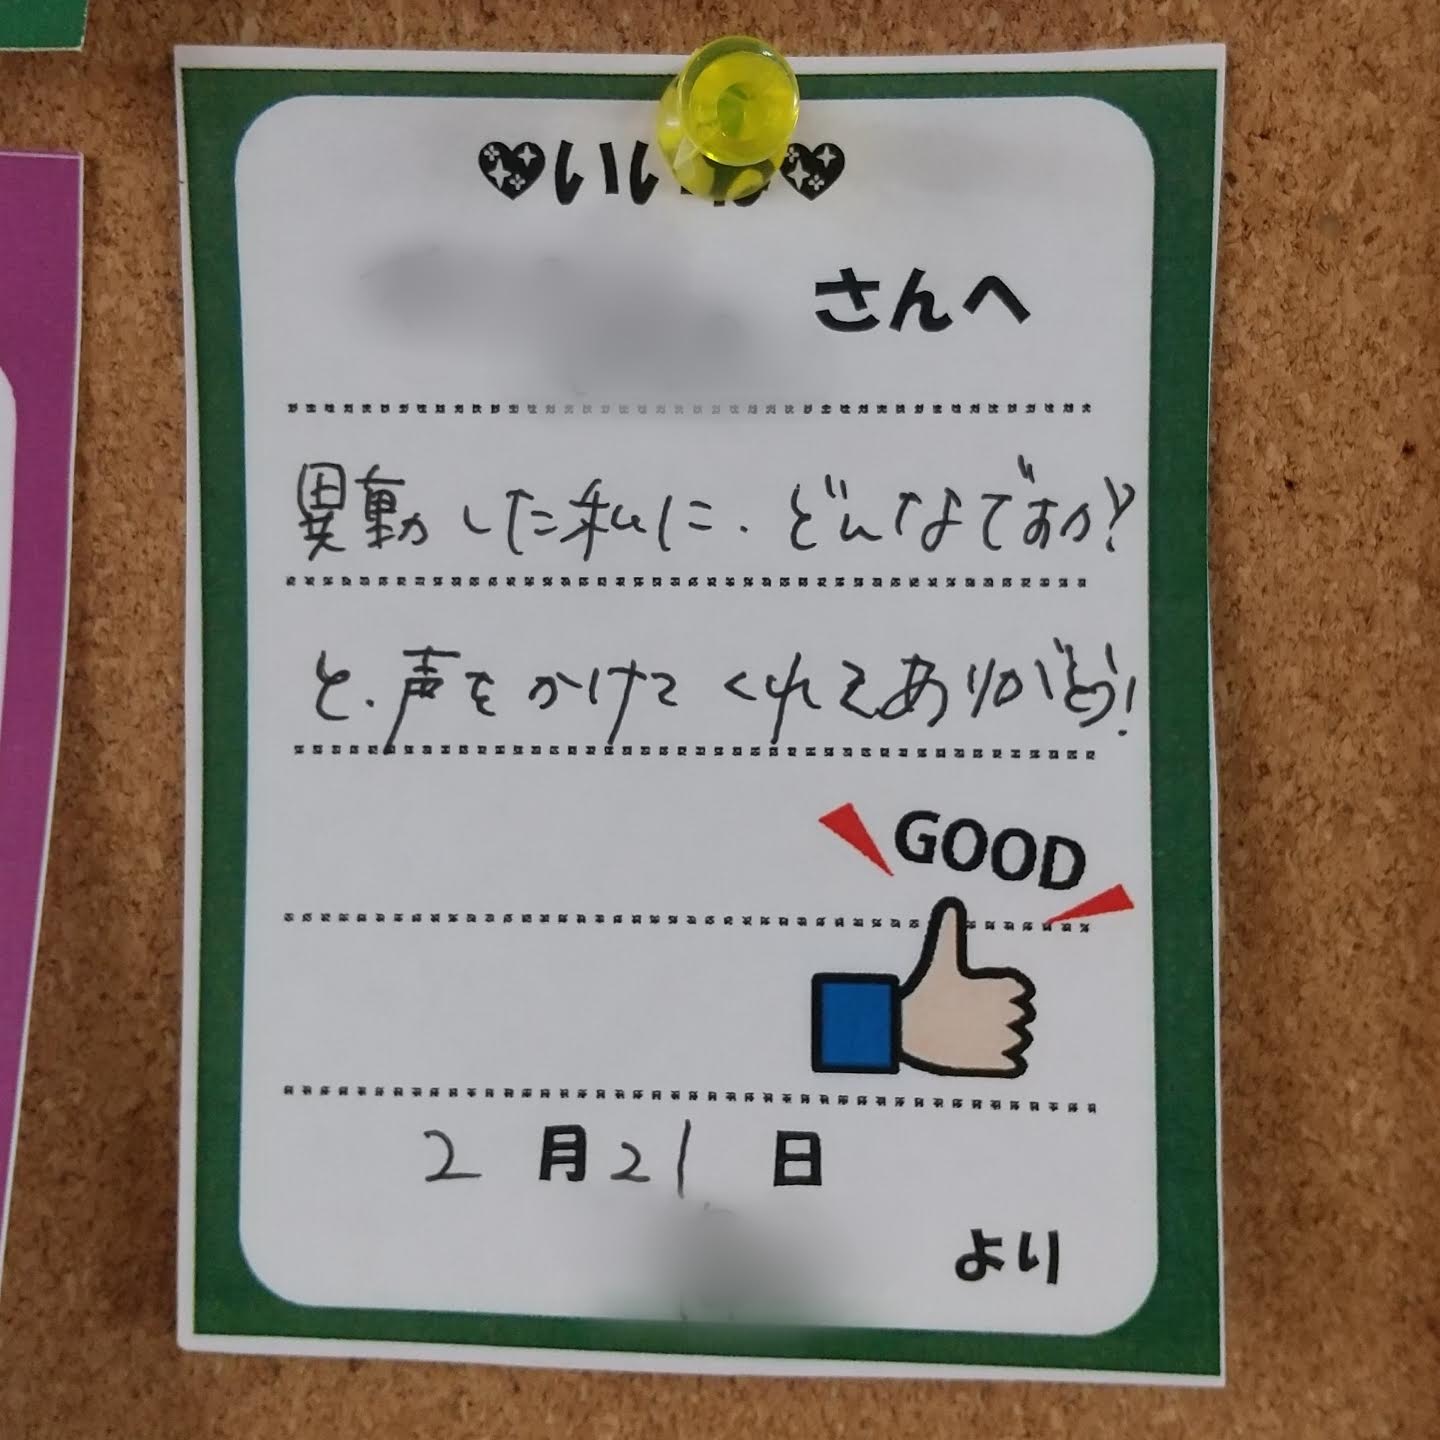 いいね
さんへ
異動した私に、どんなですか?
と、声をかけてくれてありがとう!
GOOD
2月21日
より